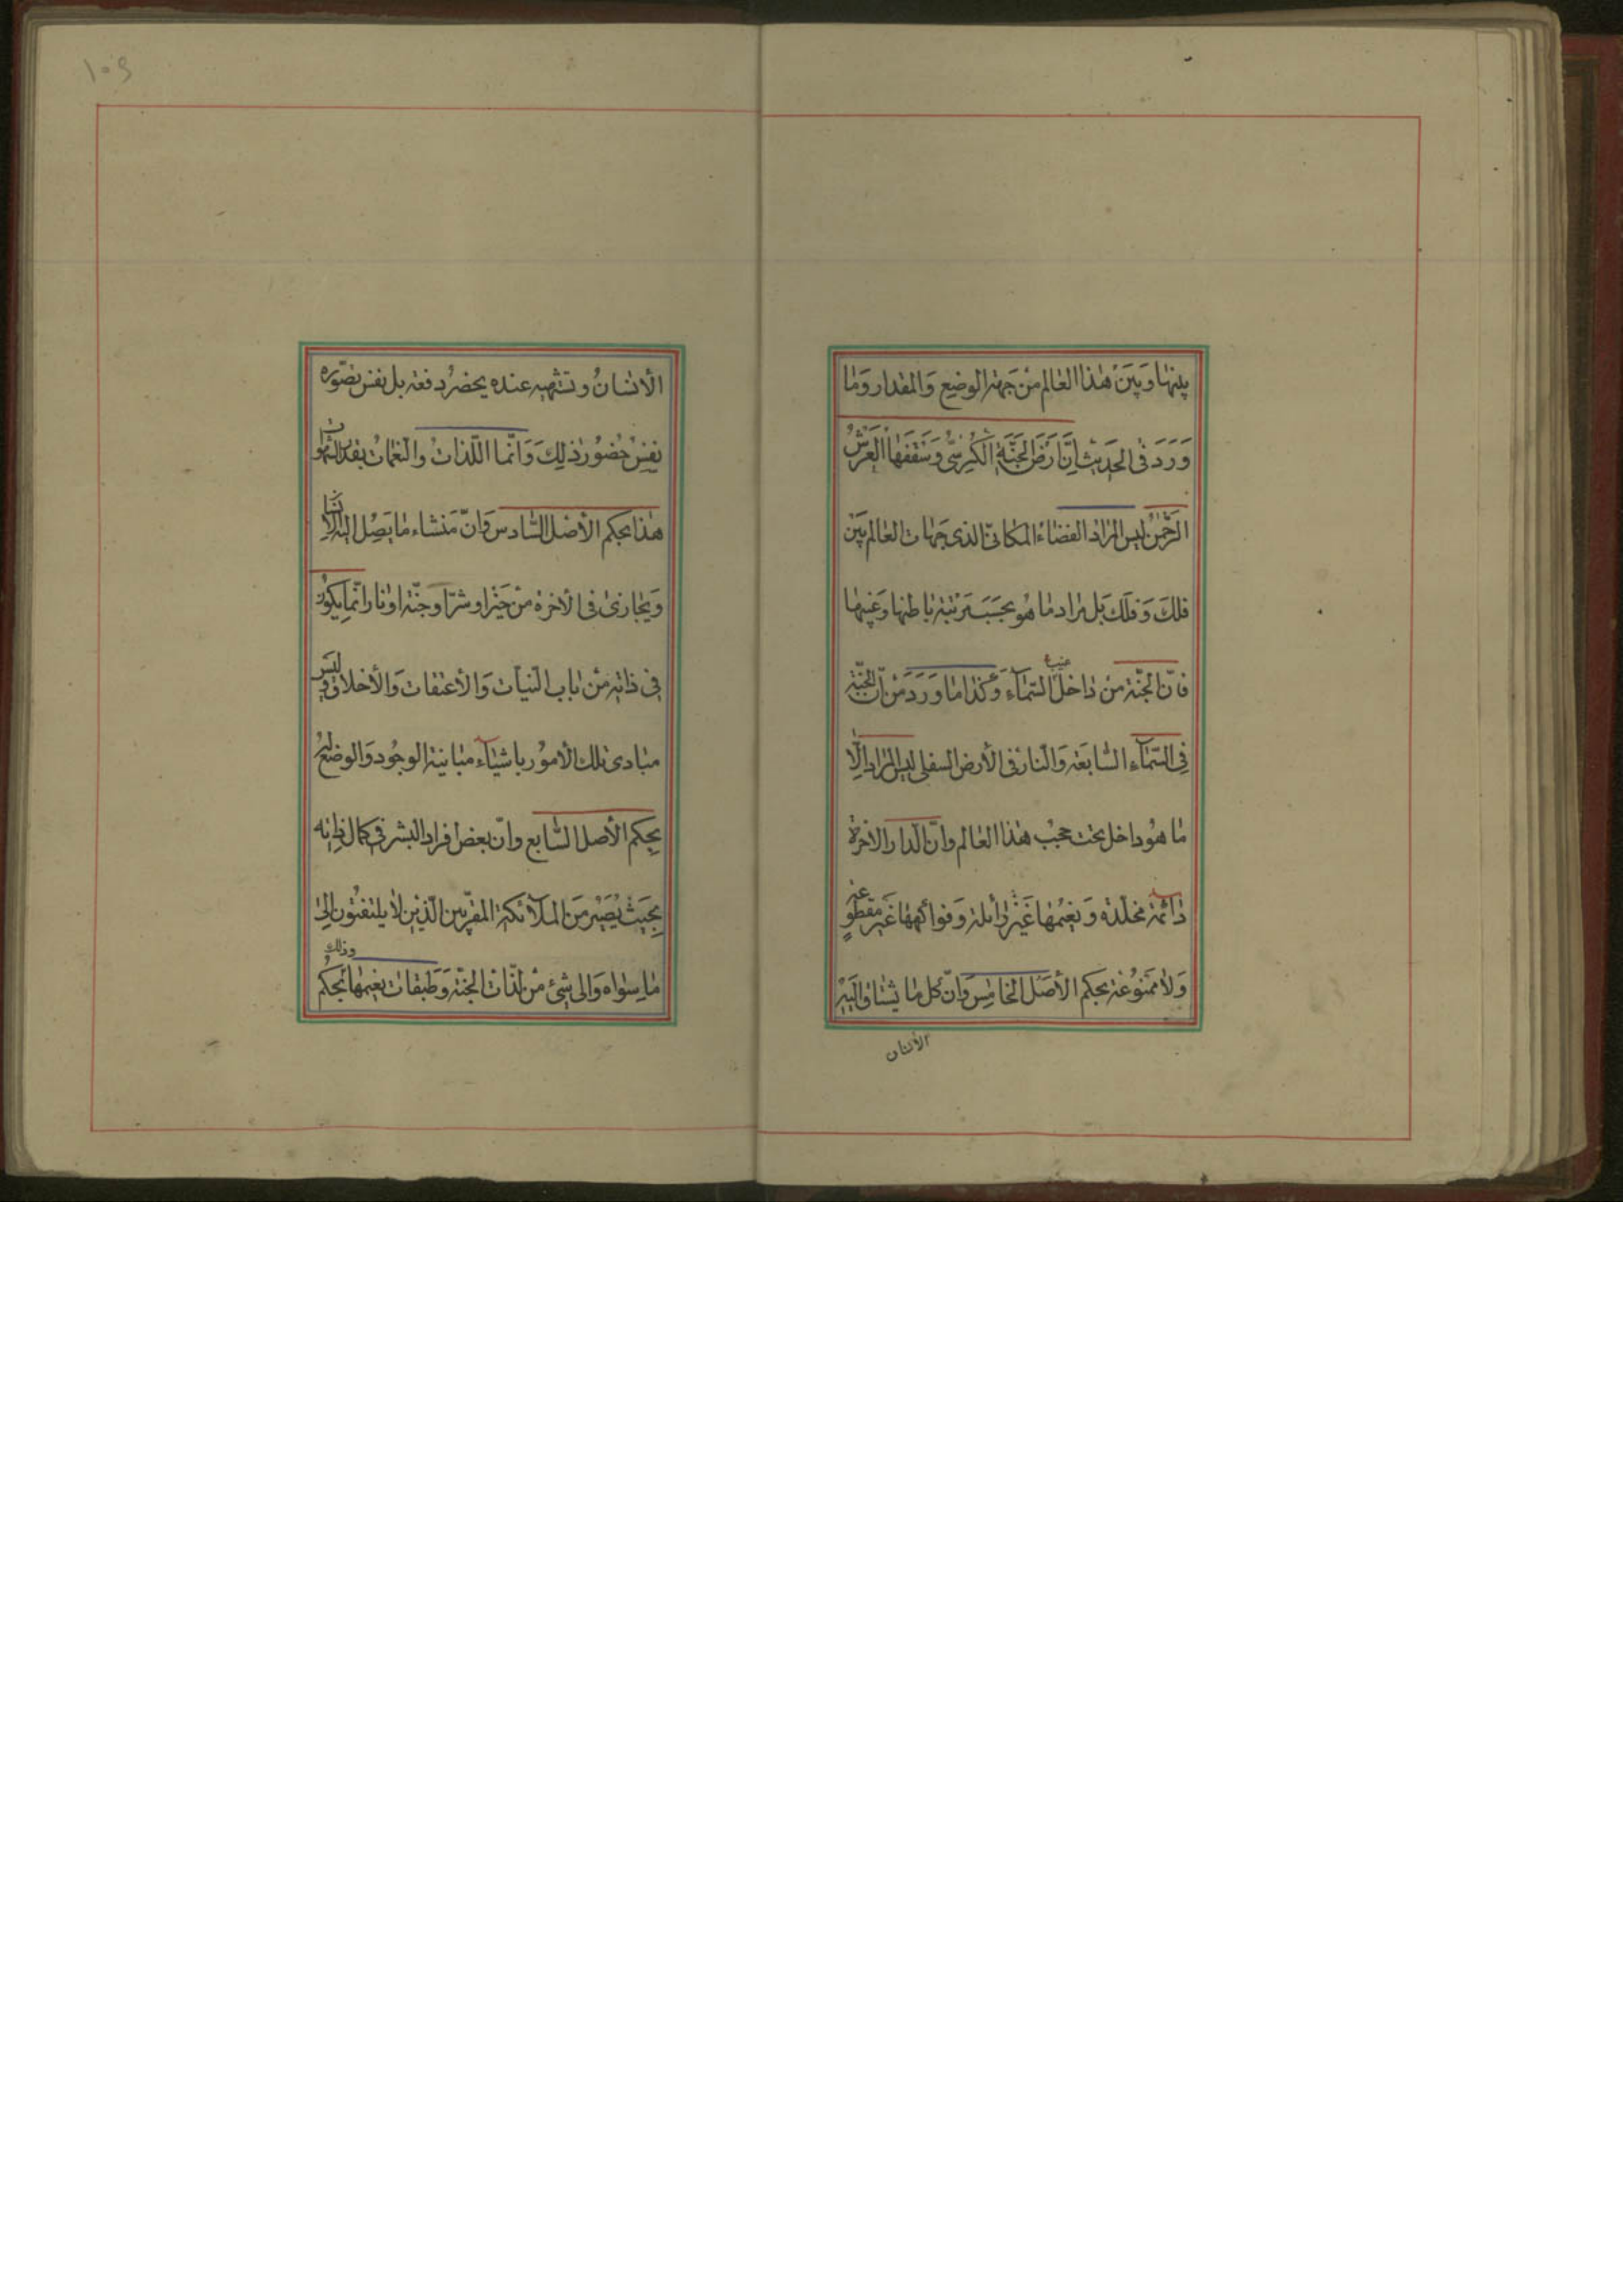 بينها وَبَيَنَ هٰذا العٰالم من جَهة الوضيع وَالمقدار وَمٰا
وَرَدَ فى الحَديث اِنَّ اَرَضَ الجَنَّةِ الكُرِسّى وَسَقَفَهٰا العَرَشُ
الرَّحْمٰن ليس المراد الفضٰاء المكانىّ الذى جَهٰات العٰالم بَيَن
فلكَ وَفلكَ بَل مراد مٰا هُو بحَسَبَ مَرتبَة بٰاطنها وَغيبها
فانّ الجنّة من دٰاخل السّمٰآء وَكذا مٰا وَرَدَ من انّ الجنّة
غيب
فِى السّمٰآء السّٰابَعَة وَالنار فى الأرض السفلى ليس المرٰاد اِلّا
مٰا هُو دٰاخل تحت حجب هٰذا العٰالم وانّ الدار الاخرة
دٰآئمة مخلّدة وَ نَعيمُهٰا غَيَر زٰائلة وَ فوٰاكههٰا غَير مقطوعة
وَلٰا ممَنوُعَة بحكم الأصَل الخٰامِس وَانّ كل مٰا يشتاق اليَهِ
الأنسان
الأنسٰانُ وتشتهيه عنده يحضرُ دفعة بل نفس تصّوره
نفسُ حُضوُر ذٰلِكَ وَ انّمٰا اللّذات وَالنعمٰات بقدر الشهوٰات
هٰذا بحكم الأصل السّٰادس وَانّ مَنشاء مٰا يَصِل اليه الأنسٰان
وَيجٰازىٰ فى الاخرة من خَيرٍ او شرّ او جنّة او نار انّمٰا يكوُن
فى ذاته من بٰاب النيات وَالأعتقات وَالأخلاق وَ ليسَ
مبٰادى تلك الأموُر باشيٰآء مبٰاينة الوجُود وَالوضع لهُ
بحكم الأصل السّٰابع وانّ بعض افراد البشر فى كمال ذاته
بِحيَث يُصَير مَن المَلآئكة المقرّبين الّذين لٰا يلتفتوُن اِلىٰ
مٰا سوٰاه وَالى شئ من لذّات الجنّة وَ طَبَقٰات نعيمهٰا بحُكم
وذلك